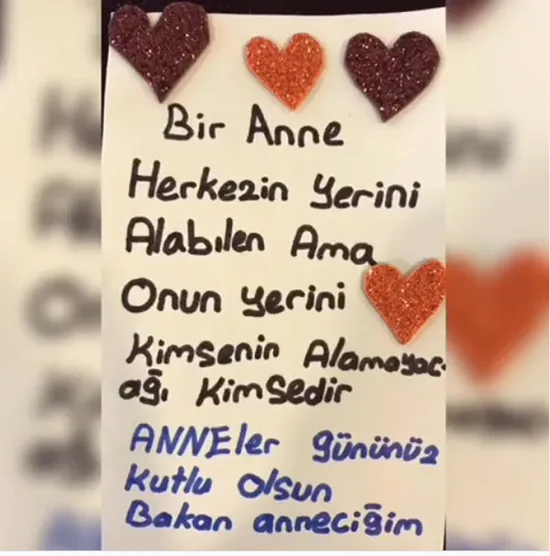 Bir Anne
Herkezin Yerini
Alabılen Ama
Onun yerini
Kimsenin Alamayac-
ağı Kimsedir
ANNEler gününüz
Kutlu olsun
Bakan anneciğim